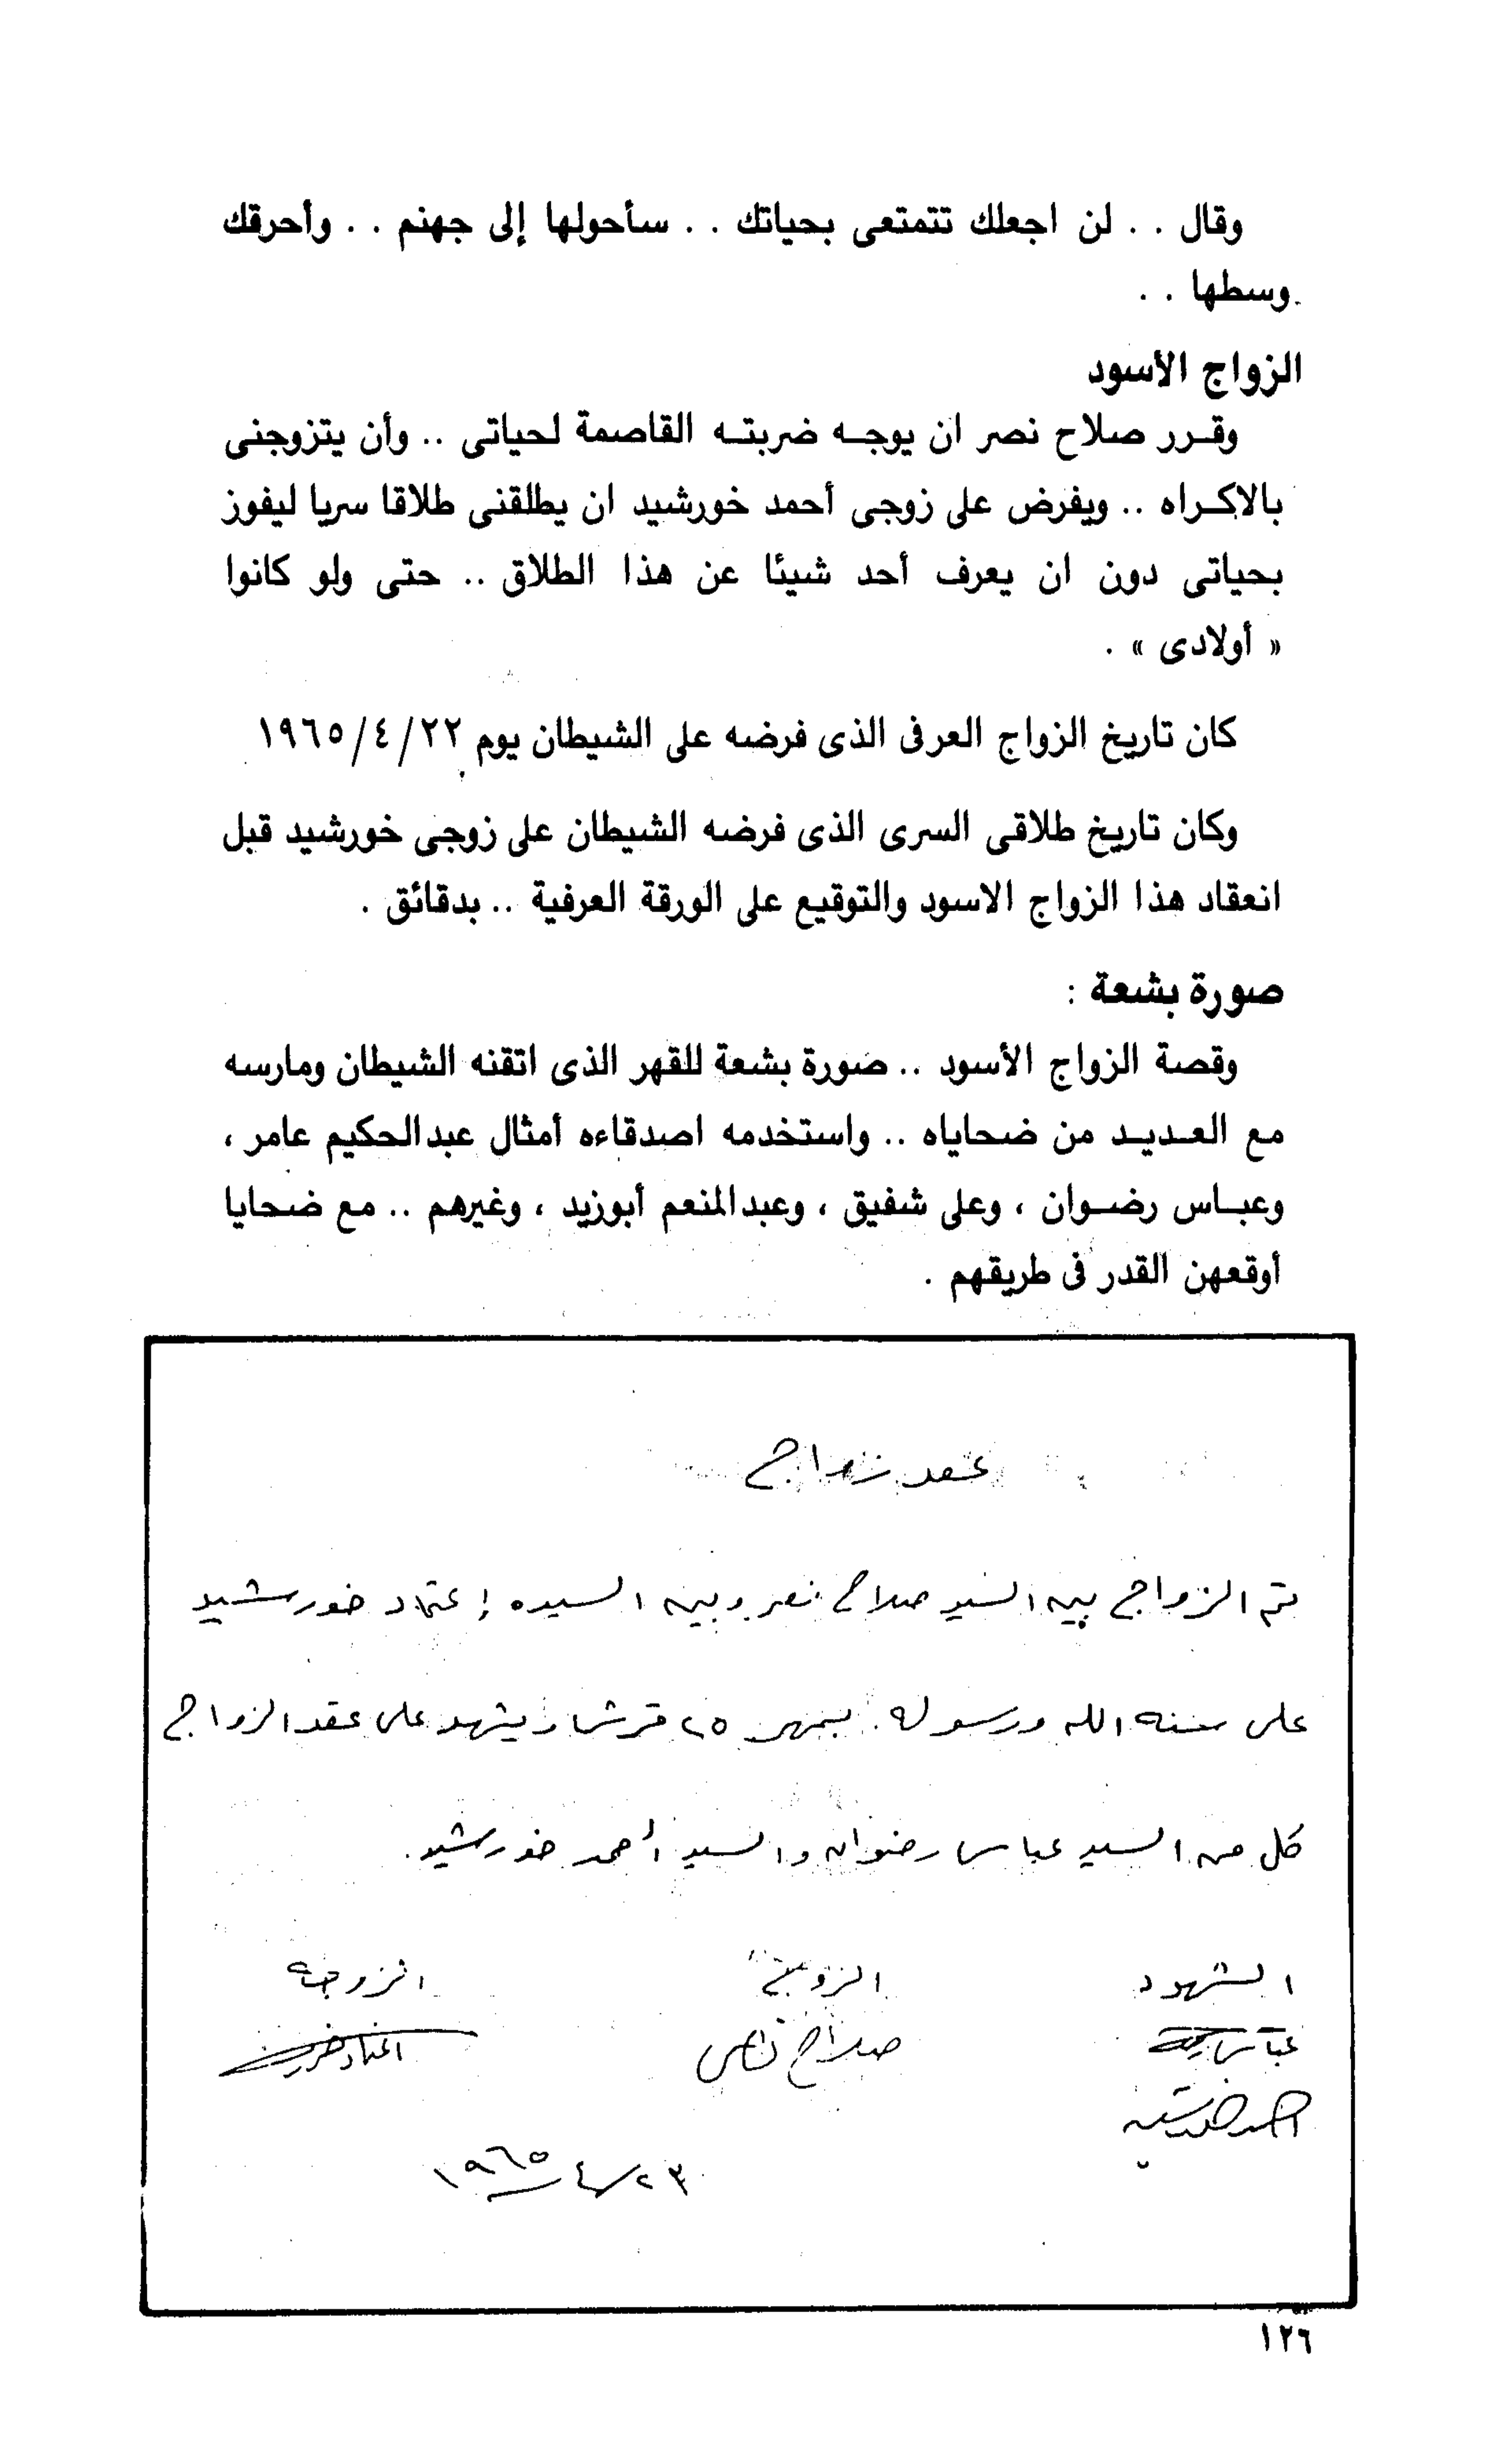 وقال . . لن اجعلك تتمتعى بحياتك . . سأحولها إلى جهنم . . وأحرقك
وسطها . .
الزواج الأسود
وقرر صلاح نصر ان يوجه ضربته القاصمة لحياتى .. وأن يتزوجنى
بالاكراه .. ويفرض على زوجى أحمد خورشيد ان يطلقنى طلاقا سريا ليفوز
بحياتى دون ان يعرف أحد شيئا عن هذا الطلاق .. حتى ولو كانوا
« أولادى » .
كان تاريخ الزواج العرفى الذى فرضه على الشيطان يوم ٢٢/٤/١٩٦٥
وكان تاريخ طلاقى السرى الذى فرضه الشيطان على زوجى خورشيد قبل
انعقاد هذا الزواج الاسود والتوقيع على الورقة العرفية .. بدقائق .
صورة بشعة :
وقصة الزواج الأسود .. صورة بشعة للقهر الذى اتقنه الشيطان ومارسه
مع العديد من ضحاياه .. واستخدمه اصدقاءه أمثال عبدالحكيم عامر ،
وعباس رضوان ، وعلى شفيق ، وعبدالمنعم أبوزيد ، وغيرهم .. مع ضحايا
أوقعهن القدر فى طريقهم .
عقد زواج
تم الزواج بين السيد صلاح نصر وبين السيده إعتماد خورشيد
على سنة الله ورسوله . بمهر ٢٥ قرشا ويشهد على عقد الزواج
كل من السيد عباس رضوان والسيد أحمد خورشيد .
الشهود الزوج الزوجة
عباس رضوان صلاح نصر اعتماد خورشيد
احمد خورشيد
٢٣/٤/١٩٦٥
١٢٦